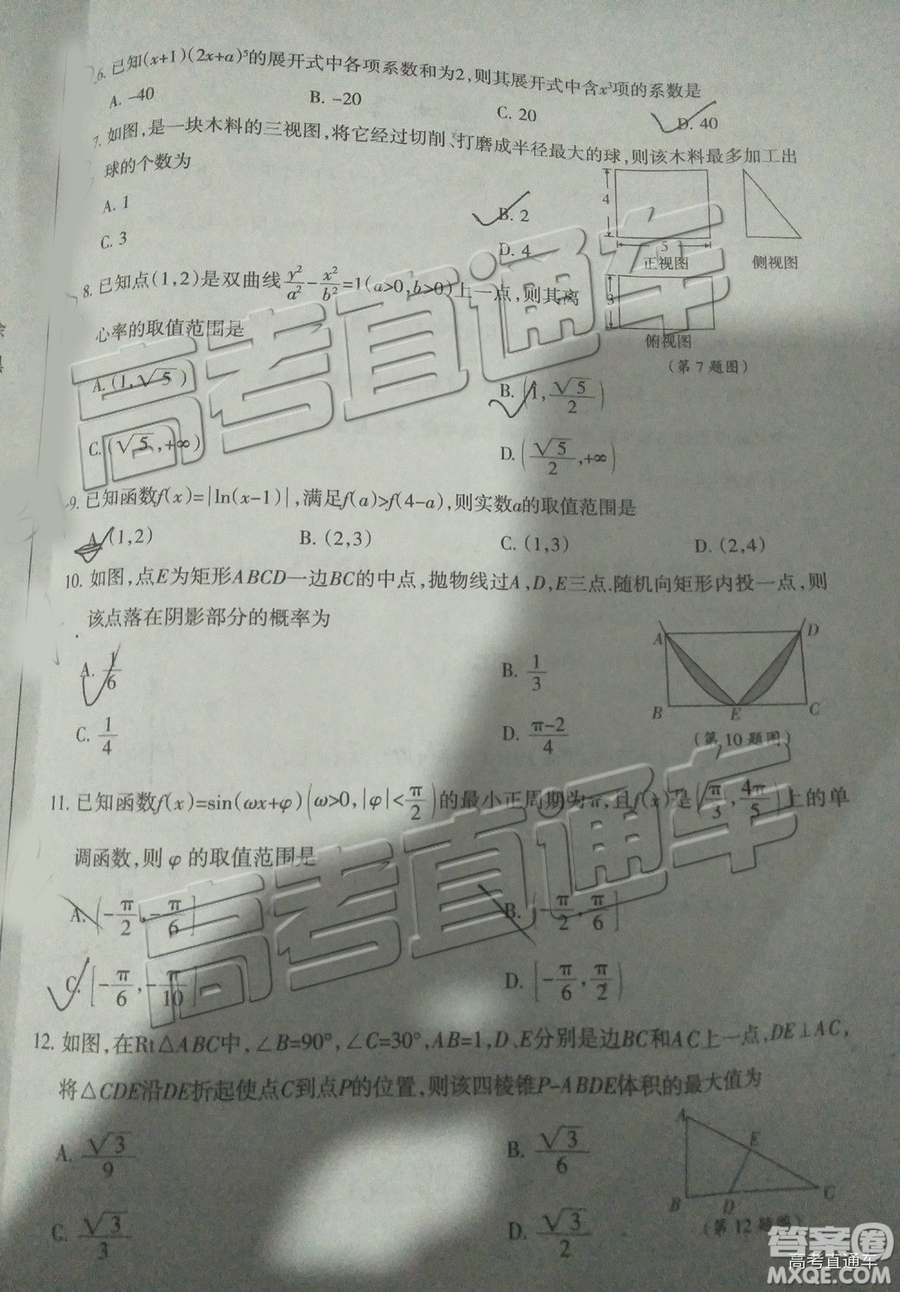 6. 已知(x+1)(2x+a)⁵的展开式中各项系数和为2,则其展开式中含x³项的系数是
A. -40 B. -20 C. 20 D. 40
7. 如图,是一块木料的三视图,将它经过切削、打磨成半径最大的球,则该木料最多加工出
球的个数为
A. 1 B. 2
C. 3 D. 4
4
5
正视图 侧视图
3
俯视图
(第7题图)
8. 已知点(1,2)是双曲线y²/a²-x²/b²=1(a>0,b>0)上一点,则其离
心率的取值范围是
A. (1,√5) B. (1,√5/2)
C. (√5,+∞) D. (√5/2,+∞)
9. 已知函数f(x)=|ln(x-1)|,满足f(a)>f(4-a),则实数a的取值范围是
A. (1,2) B. (2,3) C. (1,3) D. (2,4)
10. 如图,点E为矩形ABCD一边BC的中点,抛物线过A,D,E三点.随机向矩形内投一点,则
该点落在阴影部分的概率为
A. 1/6 B. 1/3
C. 1/4 D. (π-2)/4
A D
B E C
(第10题图)
11. 已知函数f(x)=sin(ωx+φ)(ω>0,|φ|<π/2)的最小正周期为π,且f(x)是(π/3,4π/5)上的单
调函数,则φ的取值范围是
A. [-π/2,-π/6] B. [-π/2,π/6]
C. [-π/6,-π/10] D. [-π/6,π/2)
12. 如图,在Rt△ABC中,∠B=90°,∠C=30°,AB=1,D、E分别是边BC和AC上一点,DE⊥AC,
将△CDE沿DE折起使点C到点P的位置,则该四棱锥P-ABDE体积的最大值为
A. √3/9 B. √3/6
C. √3/3 D. √3/2
A
E
B D C
(第12题图)
高考直通车
高考直通车
答案圈
高考直通车
MXQE.COM